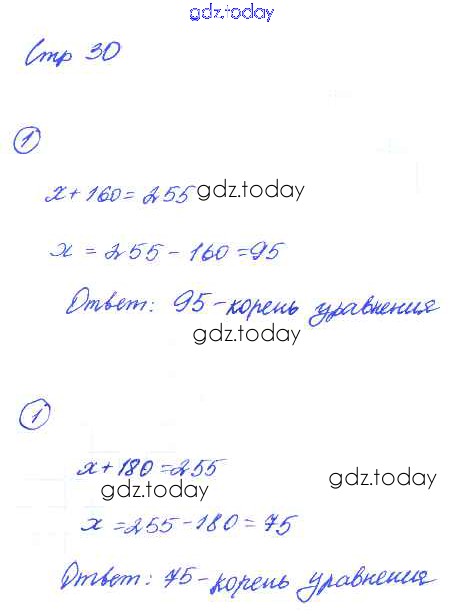 gdz.today
Стр 30
1
x+160=255 gdz.today
x = 255 - 160 = 95
Ответ: 95 - корень уравнения
gdz.today
1
x+180=255
gdz.today gdz.today
x = 255 - 180 = 75
Ответ: 75 - корень уравнения